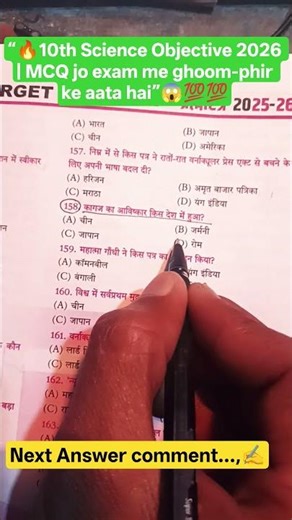 “🔥10th Science Objective 2026
| MCQ jo exam me ghoom-phir
ke aata hai”😱💯💯
RGET
2025-26
(A) भारत
(B) जापान
(C) चीन
(D) अमेरिका
157. निम्न में से किस पत्र ने रातों-रात वर्नाक्यूलर प्रेस एक्ट से बचने के
लिए अपनी भाषा बदल दी?
न में स्वीकार
(A) हरिजन
(B) अमृत बाजार पत्रिका
(C) मराठा
(D) यंग इंडिया
158. कागज का आविष्कार किस देश में हुआ?
(A) चीन
(B) जर्मनी
(C) जापान
(D) रोम
159. महात्मा गाँधी ने किस पत्र का
न किया?
(A) कॉमनवील
यंग इंडिया
(C) बंगाली
160. विश्व में सर्वप्रथम मु
(A) चीन
(C) जापान
161.
कौन
(A) लार्ड
(C) लार्ड
162.
(A)
बड़ा
(C)
163.
Next Answer comment...,✍️